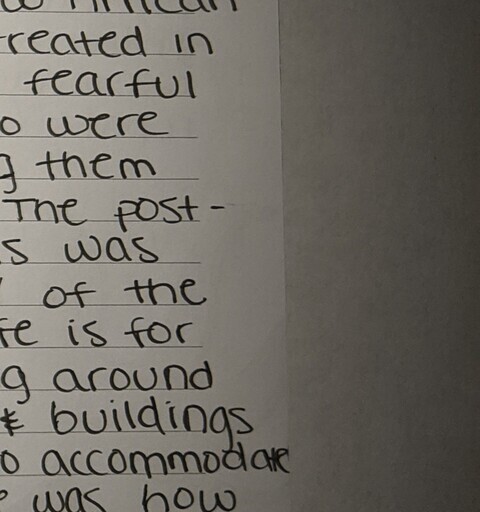 reated in
fearful
o were
g them
The post-
s was
of the
fe is for
g around
& buildings
o accommodate
was how